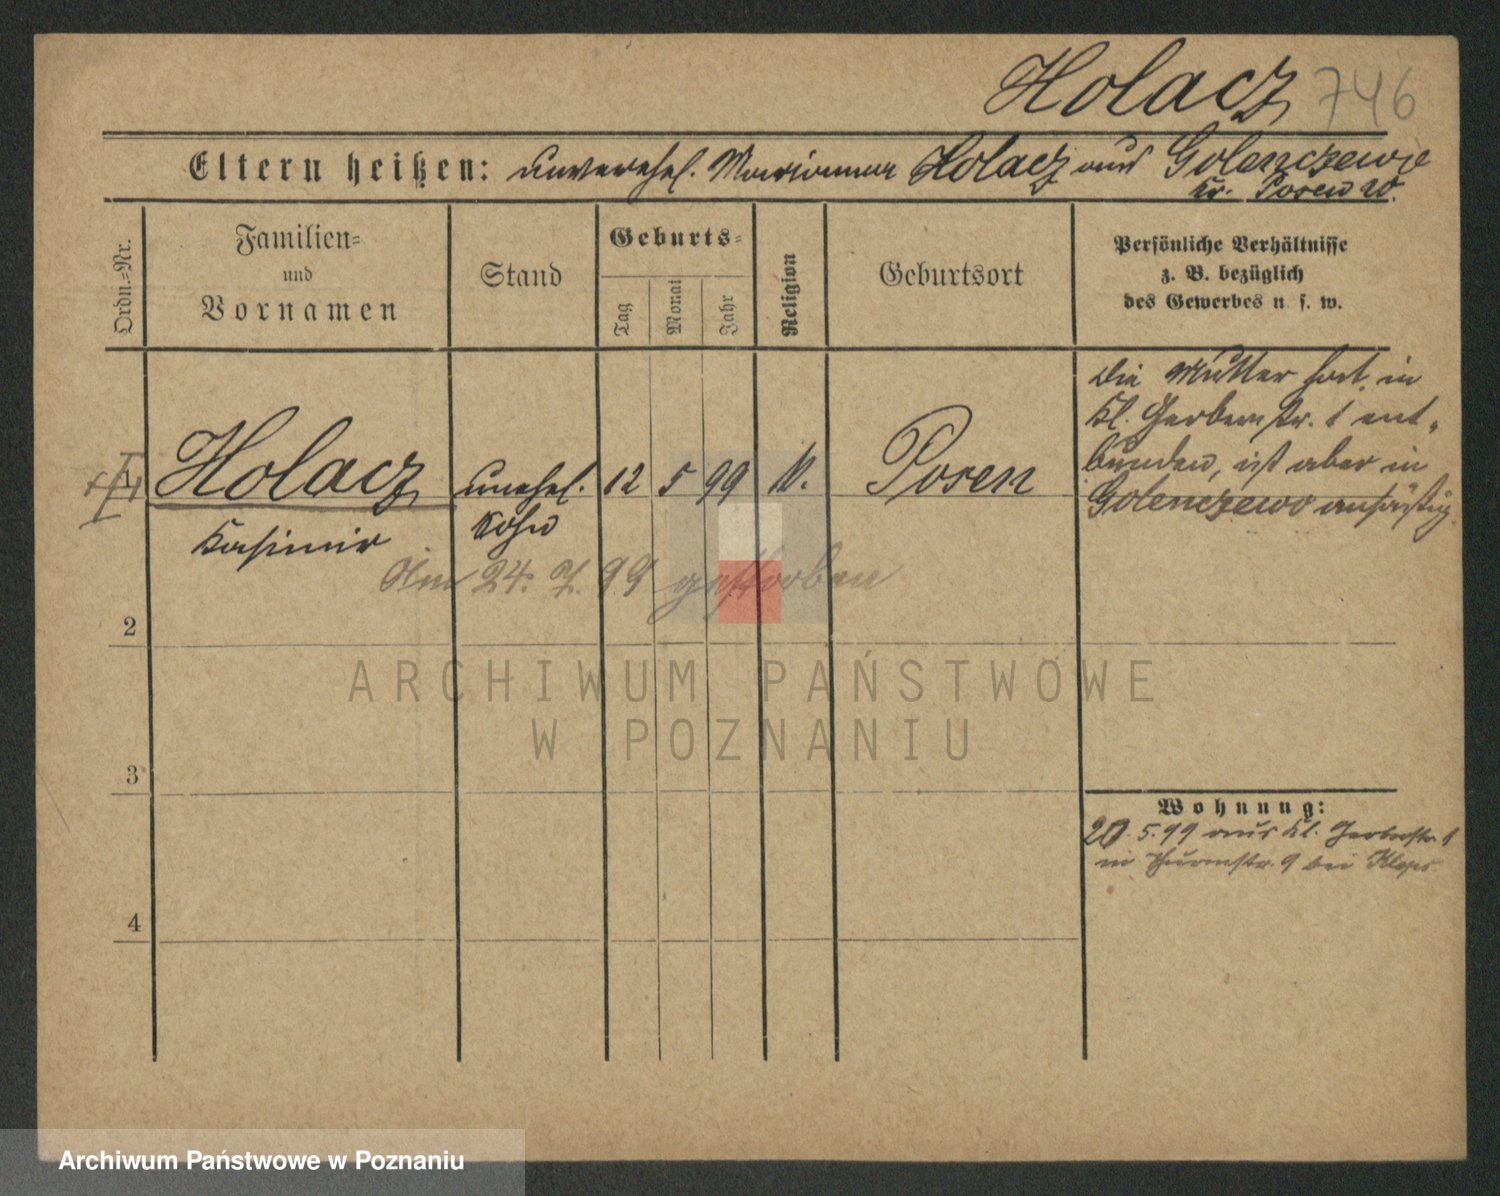 Holacz 746
Eltern heißen: unverehel. Marianna Holacz aus Golenczewie
Kr. Posen W.
Ordn.=Nr.
Familien=
und
Vornamen
Stand
Geburts=
Tag
Monat
Jahr
Religion
Geburtsort
Persönliche Verhältnisse
z. B. bezüglich
des Gewerbes u. s. w.
Holacz
Kasimir
unehel.
Sohn
12 5 99
k.
Posen
Die Mutter hat in
Kl. Gerberstr. 1 ent-
bunden, ist aber in
Golenczewo ansässig
Am 24. 7. 99 gestorben
2
3
4
Wohnung:
20. 5. 99 aus Kl. Gerberstr. 1
in Thurmstr. 9 bei
ARCHIWUM PAŃSTWOWE
W POZNANIU
Archiwum Państwowe w Poznaniu